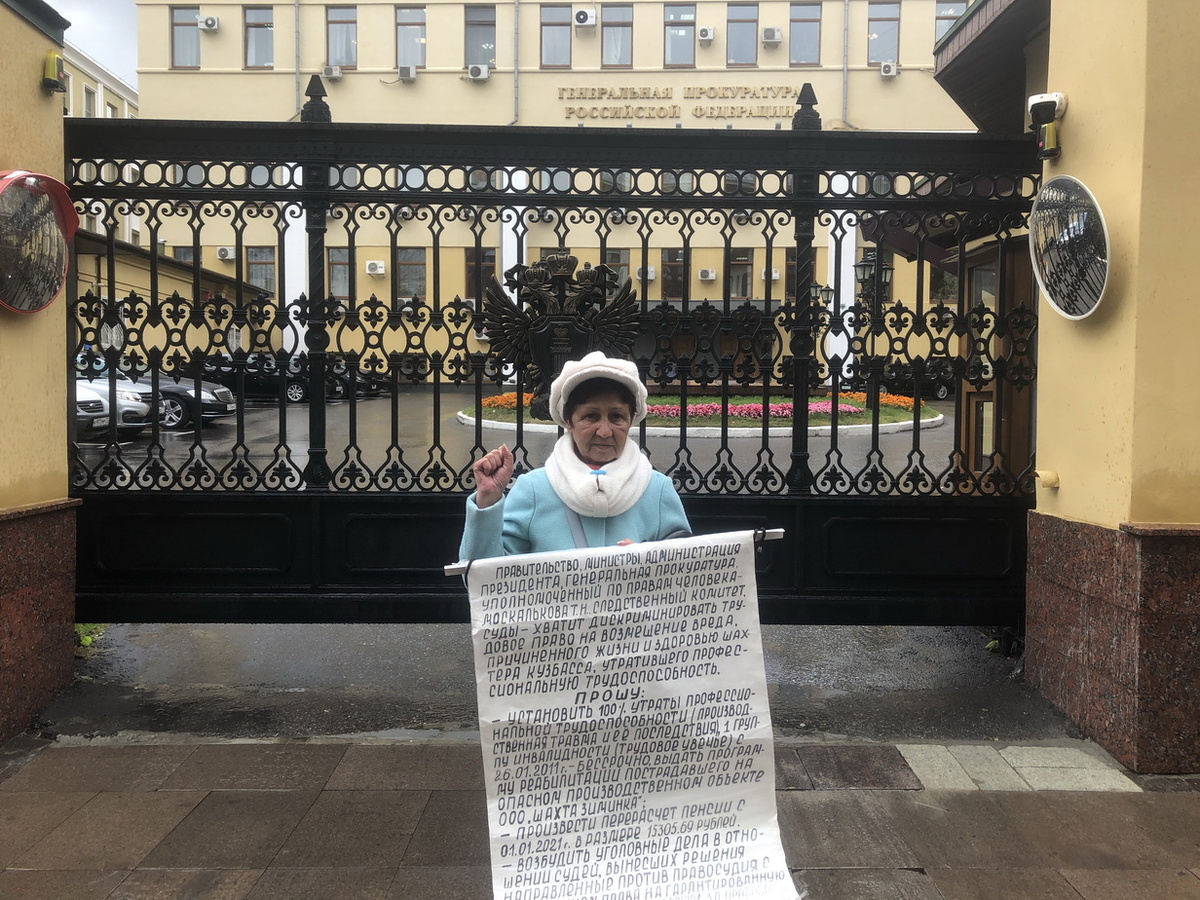 ГЕНЕРАЛЬНАЯ ПРОКУРАТУРА
РОССИЙСКОЙ ФЕДЕРАЦИИ
ПРАВИТЕЛЬСТВО, МИНИСТРЫ, АДМИНИСТРАЦИЯ
ПРЕЗИДЕНТА, ГЕНЕРАЛЬНАЯ ПРОКУРАТУРА,
УПОЛНОМОЧЕННЫЙ ПО ПРАВАМ ЧЕЛОВЕКА-
МОСКАЛЬКОВА Т.Н. СЛЕДСТВЕННЫЙ КОМИТЕТ,
СУДЫ - ХВАТИТ ДИСКРИМИНИРОВАТЬ ТРУ-
ДОВОЕ ПРАВО НА ВОЗМЕЩЕНИЕ ВРЕДА,
ПРИЧИНЕННОГО ЖИЗНИ И ЗДОРОВЬЮ ШАХ-
ТЕРА КУЗБАССА, УТРАТИВШЕГО ПРОФЕС-
СИОНАЛЬНУЮ ТРУДОСПОСОБНОСТЬ.
ПРОШУ:
- УСТАНОВИТЬ 100% УТРАТЫ ПРОФЕССИО-
НАЛЬНОЙ ТРУДОСПОСОБНОСТИ (ПРОИЗВОД-
СТВЕННАЯ ТРАВМА И ЕЁ ПОСЛЕДСТВИЯ), 1 ГРУП-
ПУ ИНВАЛИДНОСТИ (ТРУДОВОЕ УВЕЧЬЕ) С
26.01.2011 г. - БЕССРОЧНО, ВЫДАТЬ ПРОГРАМ-
МУ РЕАБИЛИТАЦИИ ПОСТРАДАВШЕГО НА
ОПАСНОМ ПРОИЗВОДСТВЕННОМ ОБЪЕКТЕ
ООО "ШАХТА ЗИМИНКА";
- ПРОИЗВЕСТИ ПЕРЕРАСЧЕТ ПЕНСИИ С
01.01.2021 г. В РАЗМЕРЕ 15305,69 РУБЛЕЙ.
- ВОЗБУДИТЬ УГОЛОВНЫЕ ДЕЛА В ОТНО-
ШЕНИИ СУДЕЙ, ВЫНЕСШИХ РЕШЕНИЯ
НАПРАВЛЕННЫЕ ПРОТИВ ПРАВОСУДИЯ С
ПРАВА НА ГАРАНТИРОВАННУЮ